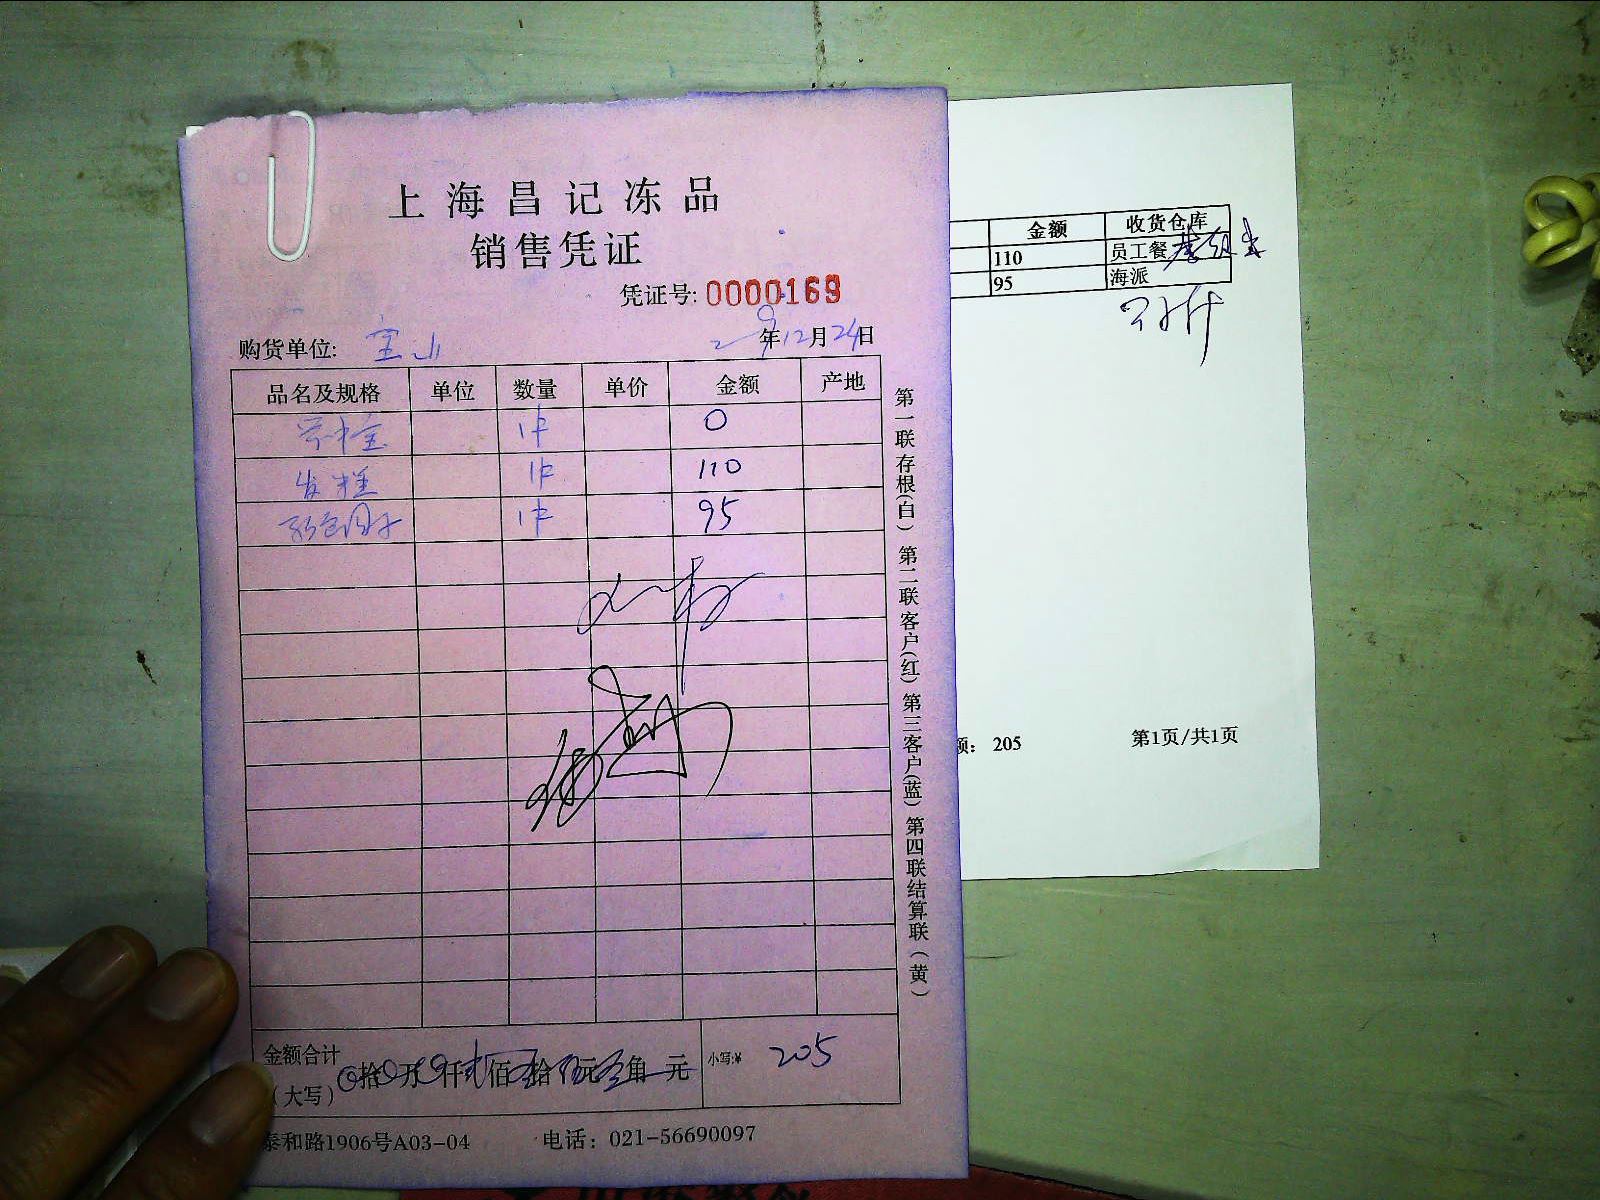 上海昌记冻品
销售凭证
凭证号: 0000169
购货单位: 宝山 年12月24日
品名及规格 单位 数量 单价 金额 产地
1件 0
发糕 1件 110
1件 95
金额合计
(大写) 拾 万 仟 佰 拾 元 角 元 小写:¥ 205
泰和路1906号A03-04 电话: 021-56690097
第一联存根(白) 第二联客户(红) 第三客户(蓝) 第四联结算联(黄)
金额 收货仓库
110 员工餐
95 海派
额: 205 第1页/共1页